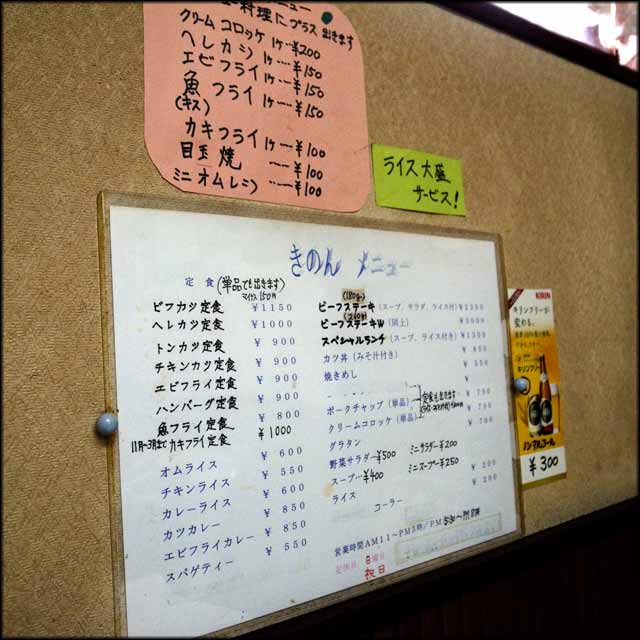 料理にプラス出きます
クリームコロッケ 1ケ…¥200
ヘレカツ 1ケ…¥150
エビフライ 1ケ…¥150
魚フライ 1ケ…¥150
(キス)
カキフライ 1ケ…¥100
目玉焼 …¥100
ミニオムレツ…¥100
ライス大盛
サービス!
きのん メニュー
定食(単品でも出きます)
マイナス150円
ビフカツ定食 ¥1150
ヘレカツ定食 ¥1000
トンカツ定食 ¥900
チキンカツ定食 ¥900
エビフライ定食 ¥900
ハンバーグ定食 ¥800
魚フライ定食 ¥1000
11月~3月まで カキフライ定食
オムライス ¥600
チキンライス ¥550
カレーライス ¥600
カツカレー ¥850
エビフライカレー ¥850
スパゲティー ¥550
(180g)
ビーフステーキ(スープ、サラダ、ライス付)
ビーフステーキW(同上)
スペシャルランチ(スープ、ライス付)
カツ丼(みそ汁付き)
焼きめし
ポークチャップ(単品) 定食も出きます
クリームコロッケ(単品)
グラタン
野菜サラダー¥500 ミニサラダー¥200
スープ…¥400 ミニスープー¥250
ライス ¥200
コーラー ¥200
営業時間AM11~PM3時/PM5:30~PM8時
定休日 日曜日
祝日
KIRIN
キリンフリーが
変わる。
キリンフリー
ノンアルコール
¥300